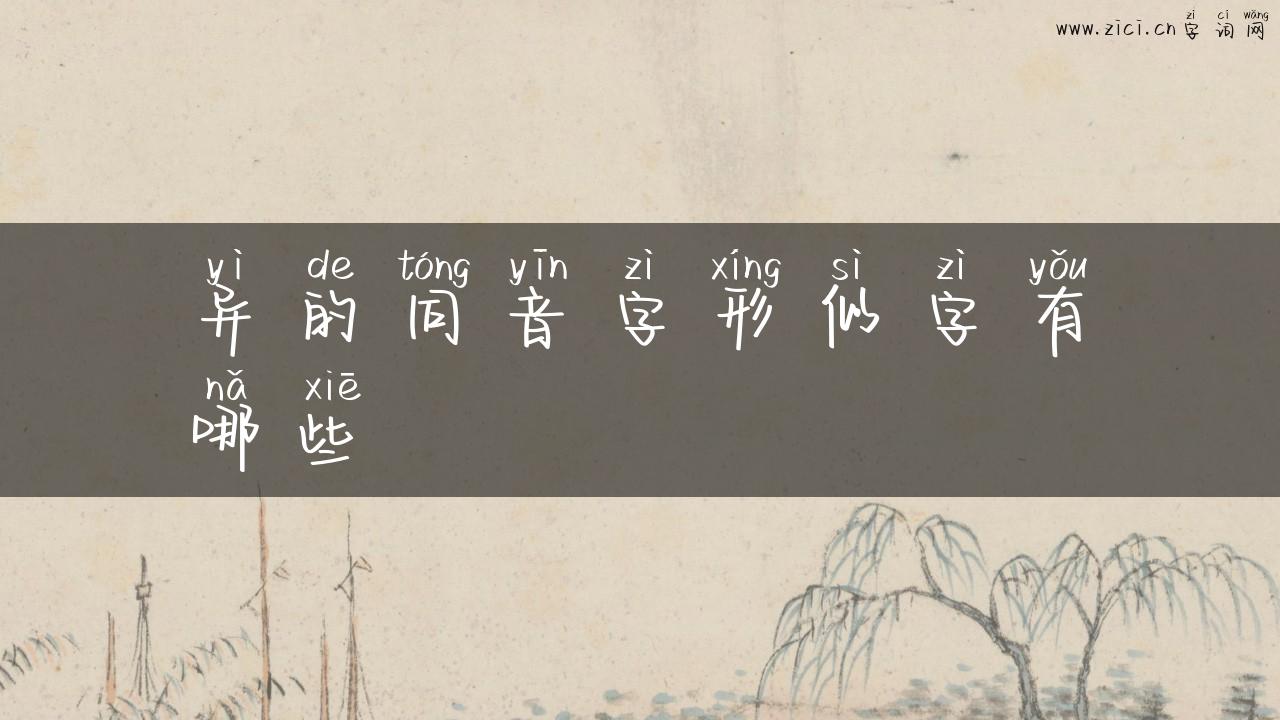 zì cí wǎng
www.zici.cn 字词网
yì de tóng yīn zì xíng sì zì yǒu
异的同音字形似字有
nǎ xiē
哪些